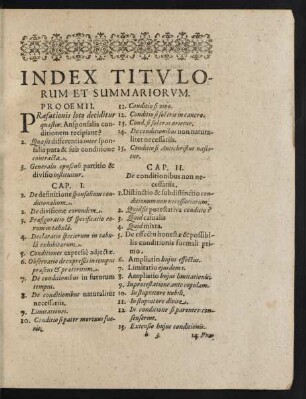 INDEX TITVLO-
RUM ET SUMMARIORVM.
PROOEMII.
PRæfationis loco deciditur
quæstio: An sponsalia con-
ditionem recipiant?
2. Quæ sit differentia inter spon-
salia pura & sub conditione
contracta.
3. Generalis opusculi partitio &
divisio instituitur.
CAP. I.
1. De definitione sponsalium con-
ditionalium.
2. De divisione eorundem.
3. Præfiguratio & specificatio eo-
rum in tabula.
4. Declaratio specierum in tabu-
lâ exhibitarum.
5. Conditiones expressè adjectæ.
6. Distinctio de expressis in tempus
præsens & præteritum.
7. De conditionibus in futurum
tempus.
8. De conditionibus naturaliter
necessariis.
9. Limitationes.
10. Conditio si pater mortuus fue-
rit.
11. Conditio si vivo.
12. Conditio si sol erit in cancro.
13. Cond. si sol cras orietur.
14. De conditionibus non natura-
liter necessariis.
15. Conditio si Antichristus nasce-
tur.
CAP. II.
De conditionibus non ne-
cessariis.
1. Distinctio & subdistinctio con-
ditionum non necessariarum.
2. Quid sit potestativa conditio?
3. Quid casualis
4. Quid mixta.
5. De effectu honestæ & possibi-
lis conditionis formali pri-
mo.
6. Ampliatio hujus effectus.
7. Limitatio ejusdem.
8. Ampliatio hujus limitationis.
9. In protestatione ante copulam.
10. In stupratore nobili.
11. In stupratore divite.
12. In conditione si parentes con-
senserint.
13. Extensio hujus conditionis.